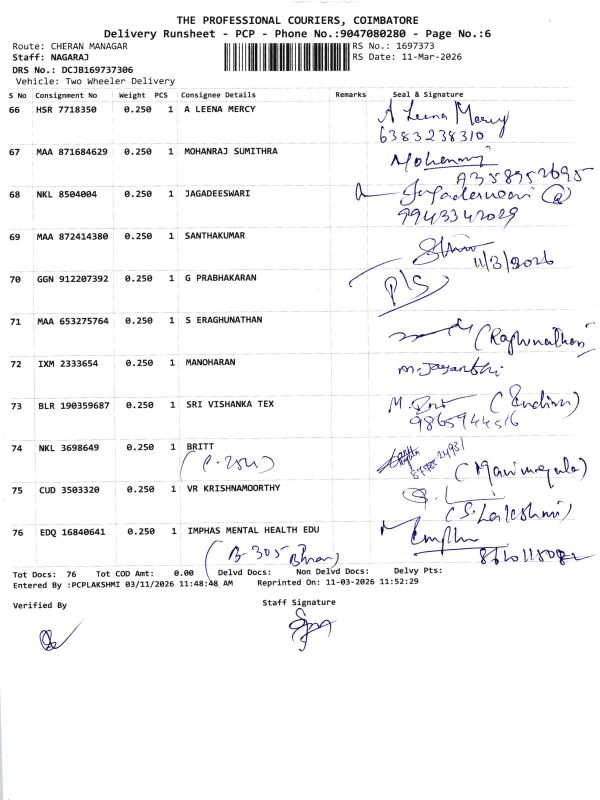 THE PROFESSIONAL COURIERS, COIMBATORE
Delivery Runsheet - PCP - Phone No.:9047080280 - Page No.:6
Route: CHERAN MANAGAR RS No.: 1697373
Staff: NAGARAJ RS Date: 11-Mar-2026
DRS No.: DCJB169737306
Vehicle: Two Wheeler Delivery
S No Consignment No Weight PCS Consignee Details Remarks Seal & Signature
66 HSR 7718350 0.250 1 A LEENA MERCY A Leena Mercy
6383238310
67 MAA 871684629 0.250 1 MOHANRAJ SUMITHRA
68 NKL 8504004 0.250 1 JAGADEESWARI
9943342029
69 MAA 872414380 0.250 1 SANTHAKUMAR
11/3/2026
70 GGN 912207392 0.250 1 G PRABHAKARAN
71 MAA 653275764 0.250 1 S ERAGHUNATHAN
(Raghunathan)
72 IXM 2333654 0.250 1 MANOHARAN
73 BLR 190359687 0.250 1 SRI VISHANKA TEX
74 NKL 3698649 0.250 1 BRITT
75 CUD 3503320 0.250 1 VR KRISHNAMOORTHY
76 EDQ 16840641 0.250 1 IMPHAS MENTAL HEALTH EDU
Tot Docs: 76 Tot COD Amt: 0.00 Delvd Docs: Non Delvd Docs: Delvy Pts:
Entered By :PCPLAKSHMI 03/11/2026 11:48:48 AM Reprinted On: 11-03-2026 11:52:29
Verified By Staff Signature